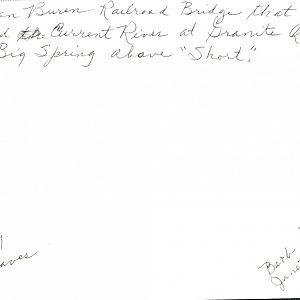 en Buren Railroad Bridge that
d the Current River at Granite Q
Big Spring above "Short".
aves
Beth
Jane